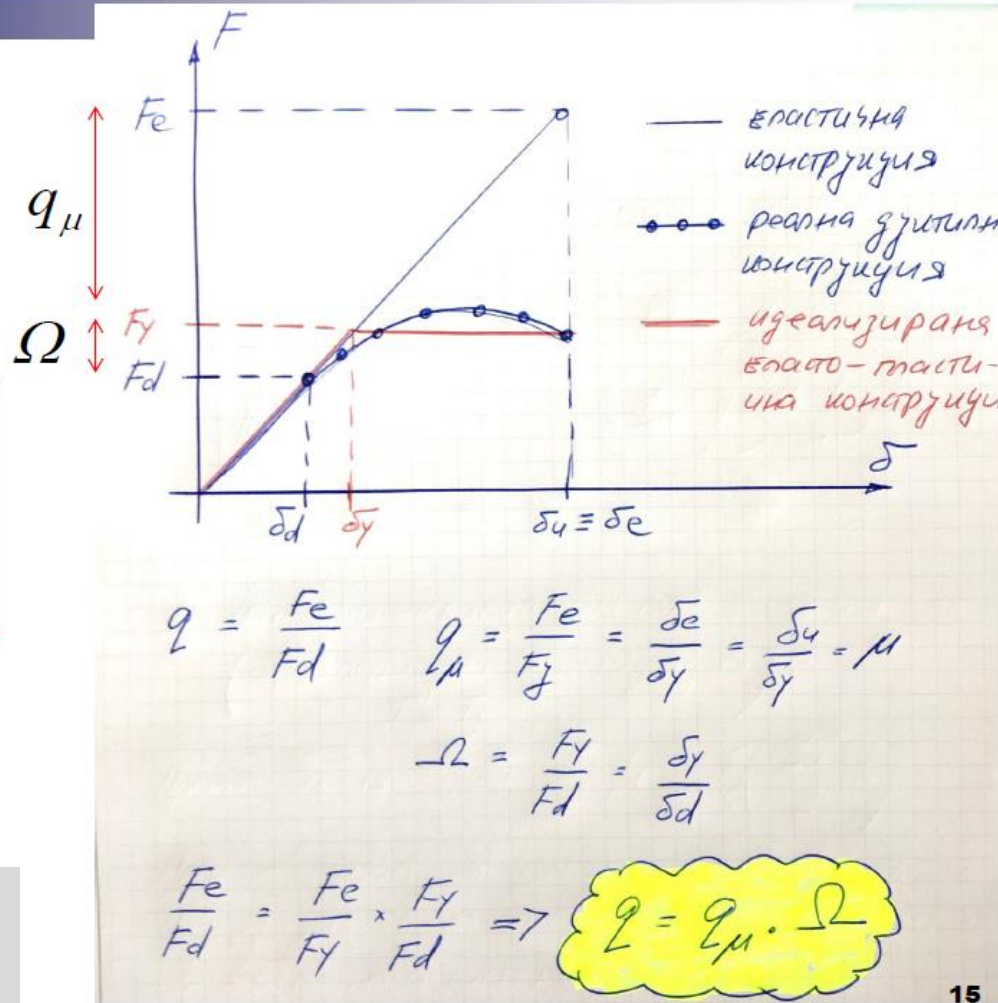 F
Fe
qμ
Fy
Ω
Fd
δd δy δu ≡ δe
δ
еластична
конструкция
реална дуктилн
конструкция
идеализирана
еласто-пласти-
чна конструкци
q = Fe/Fd qμ = Fe/Fy = δe/δy = δu/δy = μ
Ω = Fy/Fd = δy/δd
Fe/Fd = Fe/Fy × Fy/Fd => q = qμ · Ω
15